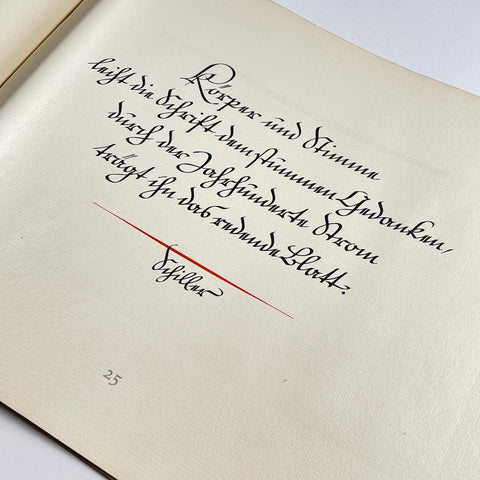 Körper und Stimme
leiht die Schrift dem stummen Gedanken,
durch der Jahrhunderte Strom
trägt ihn das redende Blatt.
Schiller
25